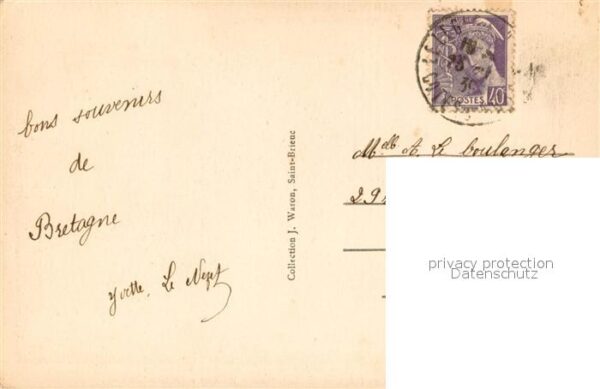 bons souvenirs
de
Bretagne
Yvette Le
Collection J. Waron, Saint-Brieuc
POSTES 40
Mlle A. Le boulanger
29
privacy protection
Datenschutz